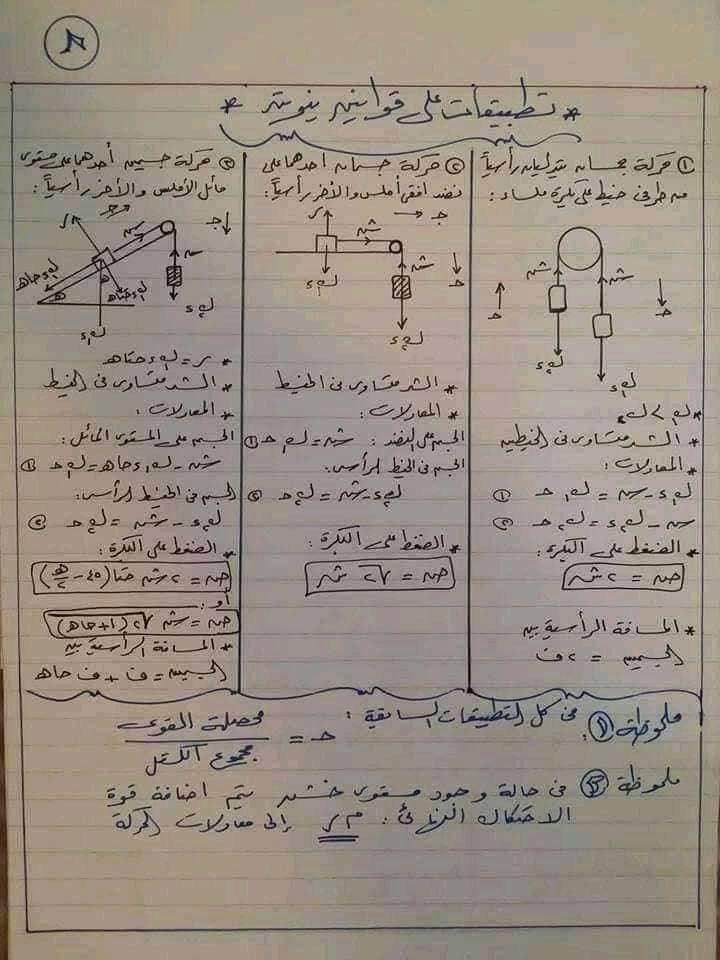 ٨
* تطبيقات على قوانين نيوتن *
① حركة جسمان يتدليان رأسياً
من طرفى خيط على بكرة ملساء :
شـ
شـ
حـ
حـ
ك₂ء
ك₁ء
* ك₁ > ك₂
* الشد متساوى فى الخيطين
* المعادلات :
ك₁ء - شـ = ك₁ حـ ①
شـ - ك₂ء = ك₂ حـ ②
* الضغط على البكرة :
ضـ = ٢ شـ
* المسافة الرأسية بين
الجسمين = ٢ ف
② حركة جسمان أحدهما على
نضد أفقى أملس والآخر رأسياً :
ر
شـ
حـ
شـ
حـ
ك₁ء
ك₂ء
* الشد متساوى فى الخيط
* المعادلات :
الجسم على النضد : شـ = ك₁ حـ ①
الجسم فى الخيط الرأسى :
ك₂ء - شـ = ك₂ حـ ②
* الضغط على البكرة :
ضـ = √٢ شـ
③ حركة جسمين أحدهما على مستوى
مائل أملس والآخر رأسياً :
ر
حـ
شـ
حـ
شـ
ك₁ء حاهـ
ك₁ء حتاهـ
هـ
هـ
ك₁ء
ك₂ء
* ر = ك₁ء حتاهـ
* الشد متساوى فى الخيط
* المعادلات :
الجسم على المستوى المائل :
شـ - ك₁ء حاهـ = ك₁ حـ ①
الجسم فى الخيط الرأسى :
ك₂ء - شـ = ك₂ حـ ②
* الضغط على البكرة :
ضـ = ٢ شـ حتا (٤٥ - هـ/٢)
أو :
ضـ = شـ √٢(١+حاهـ)
* المسافة الرأسية بين
الجسمين = ف + ف حاهـ
ملحوظة ① : فى كل التطبيقات السابقة : حـ = محصلة القوى / مجموع الكتل
ملحوظة ② فى حالة وجود مستوى خشن يتم اضافة قوة
الاحتكاك النهائى : م ر إلى معادلات الحركة